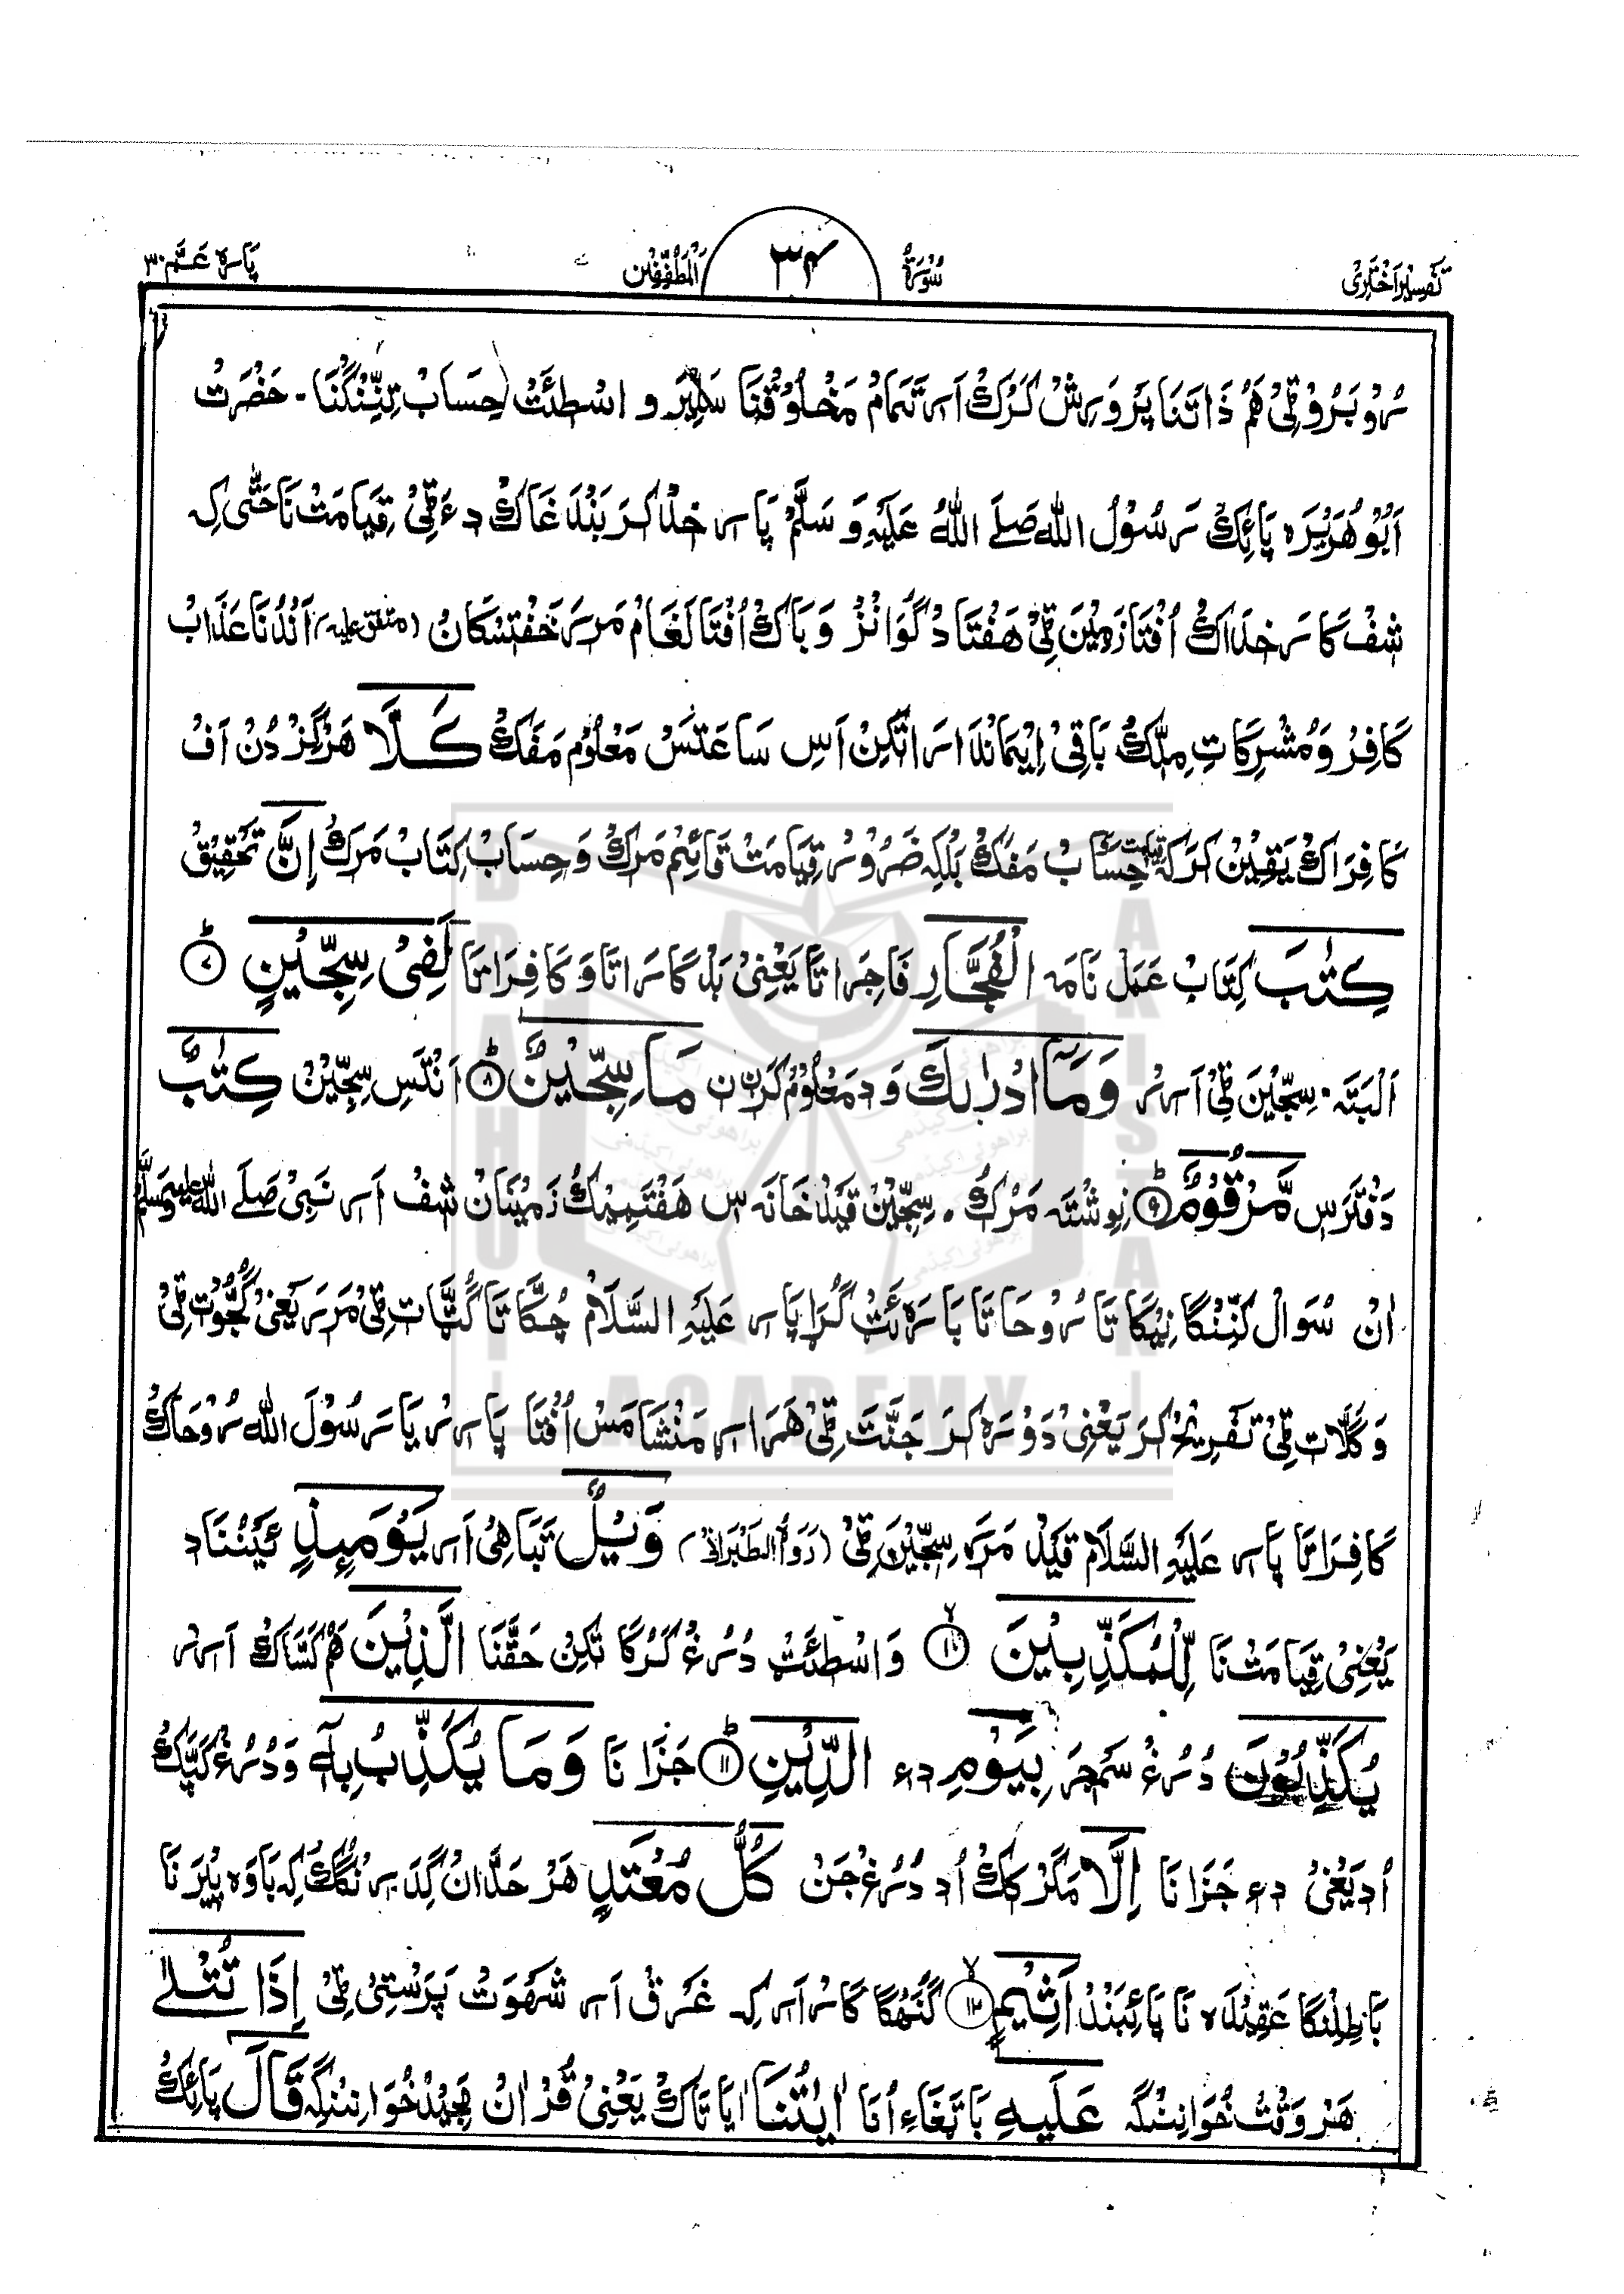 تفسیر اختری سورۃ ۳۴ المطففین پارہ عم ۳۰
رُوبرو ٹی ھم ذاتنا پرورش کرک اَر تمام مخلوقنا سلیر و اسطئت حساب تننگنا - حضرت
ابوھریرہ پائک رسول اللہ صلے اللہ علیہ وسلم پار خذا کر بندغاک دءَ ٹی قیامت نا حتّٰی کہ
شف کار خذاک اُفتا زمین ٹی ھفتاد گوانز وباک اُفتا لغام مرر خفتسکان (متفق علیہ) اندنا عذاب
کافر ومشرکاتِ ملّک باقی ایماندارا تکن اَس ساعتس معلوم مفک کَلَّا ھرگز دُن اَف
کافراک یقین کر کہ قیامت نا حساب مفک بلکہ ضرور قیامت قائم مرک وحساب کتاب مرک اِنَّ تحقیق
کِتٰبَ کتاب عمل نامہ الْفُجَّارِ فاجراتا یعنی بدکاراتا وکافراتا لَفِیْ سِجِّیْنٍ ۷
البتہ سجّین ٹی اَرر وَمَآ اَدْرٰىكَ و د معلوم کرن ن مَا سِجِّیْنٌ ۸ اَنتَس سجّین کِتٰبٌ
دفترس مَّرْقُوْمٌ ۹ نوشتہ مرک . سجّین قیدخانہ س ھفتمیک زمینان شف اَر نبی صلے اللہ علیہ وسلم
اٰن سوال کننگا نیکاتا روحاتا بارہ ئت گڑا پار علیہ السّلام چُکّاتا گٹّات ٹی مرر یعنی گجُّوت ٹی
وگلات ٹی تفریح کر یعنی دورہ کر جنّت ٹی ھمرا ار منشا مس اُفتا پارر یا رسول اللہ روحاک
کافراتا پار علیہ السّلام قید مرر سجّین ٹی (رواہ الطبرانی) وَیْلٌ تباھی اَر یَوْمَئِذٍ ئینُنا د
یعنی قیامت نا لِّلْمُكَذِّبِیْنَ ۱۰ واسطئت دُرغ کرکا تکن حقّنا الَّذِیْنَ ھم کسّاک اَرر
یُكَذِّبُوْنَ دُرغ سمجر بِیَوْمِ دءِ الدِّیْنِ ۱۱ جزا نا وَمَا یُكَذِّبُ بِہٖۤ ودُرغ کپّک
اُد یعنی دءِ جزا نا اِلَّا مگر کک اُد دُرغ جن كُلُّ مُعْتَدٍ ھر حدّان گدرنگک کہ باوہ پیر نا
باطلنگا عقیدہ نا پائبند اَثِیْمٍ ۱۲ گنھگار اَر کہ غرق اَر شھوت پرستی ٹی اِذَا تُتْلٰے
ھر وقت خواننگہ عَلَیْہِ باتغاءِ اُنا اٰیٰتُنَا اٰیاتاک یعنی قراٰن مجید خواننگہ قَالَ پائک
BRAHUI ACADEMY PAKISTAN